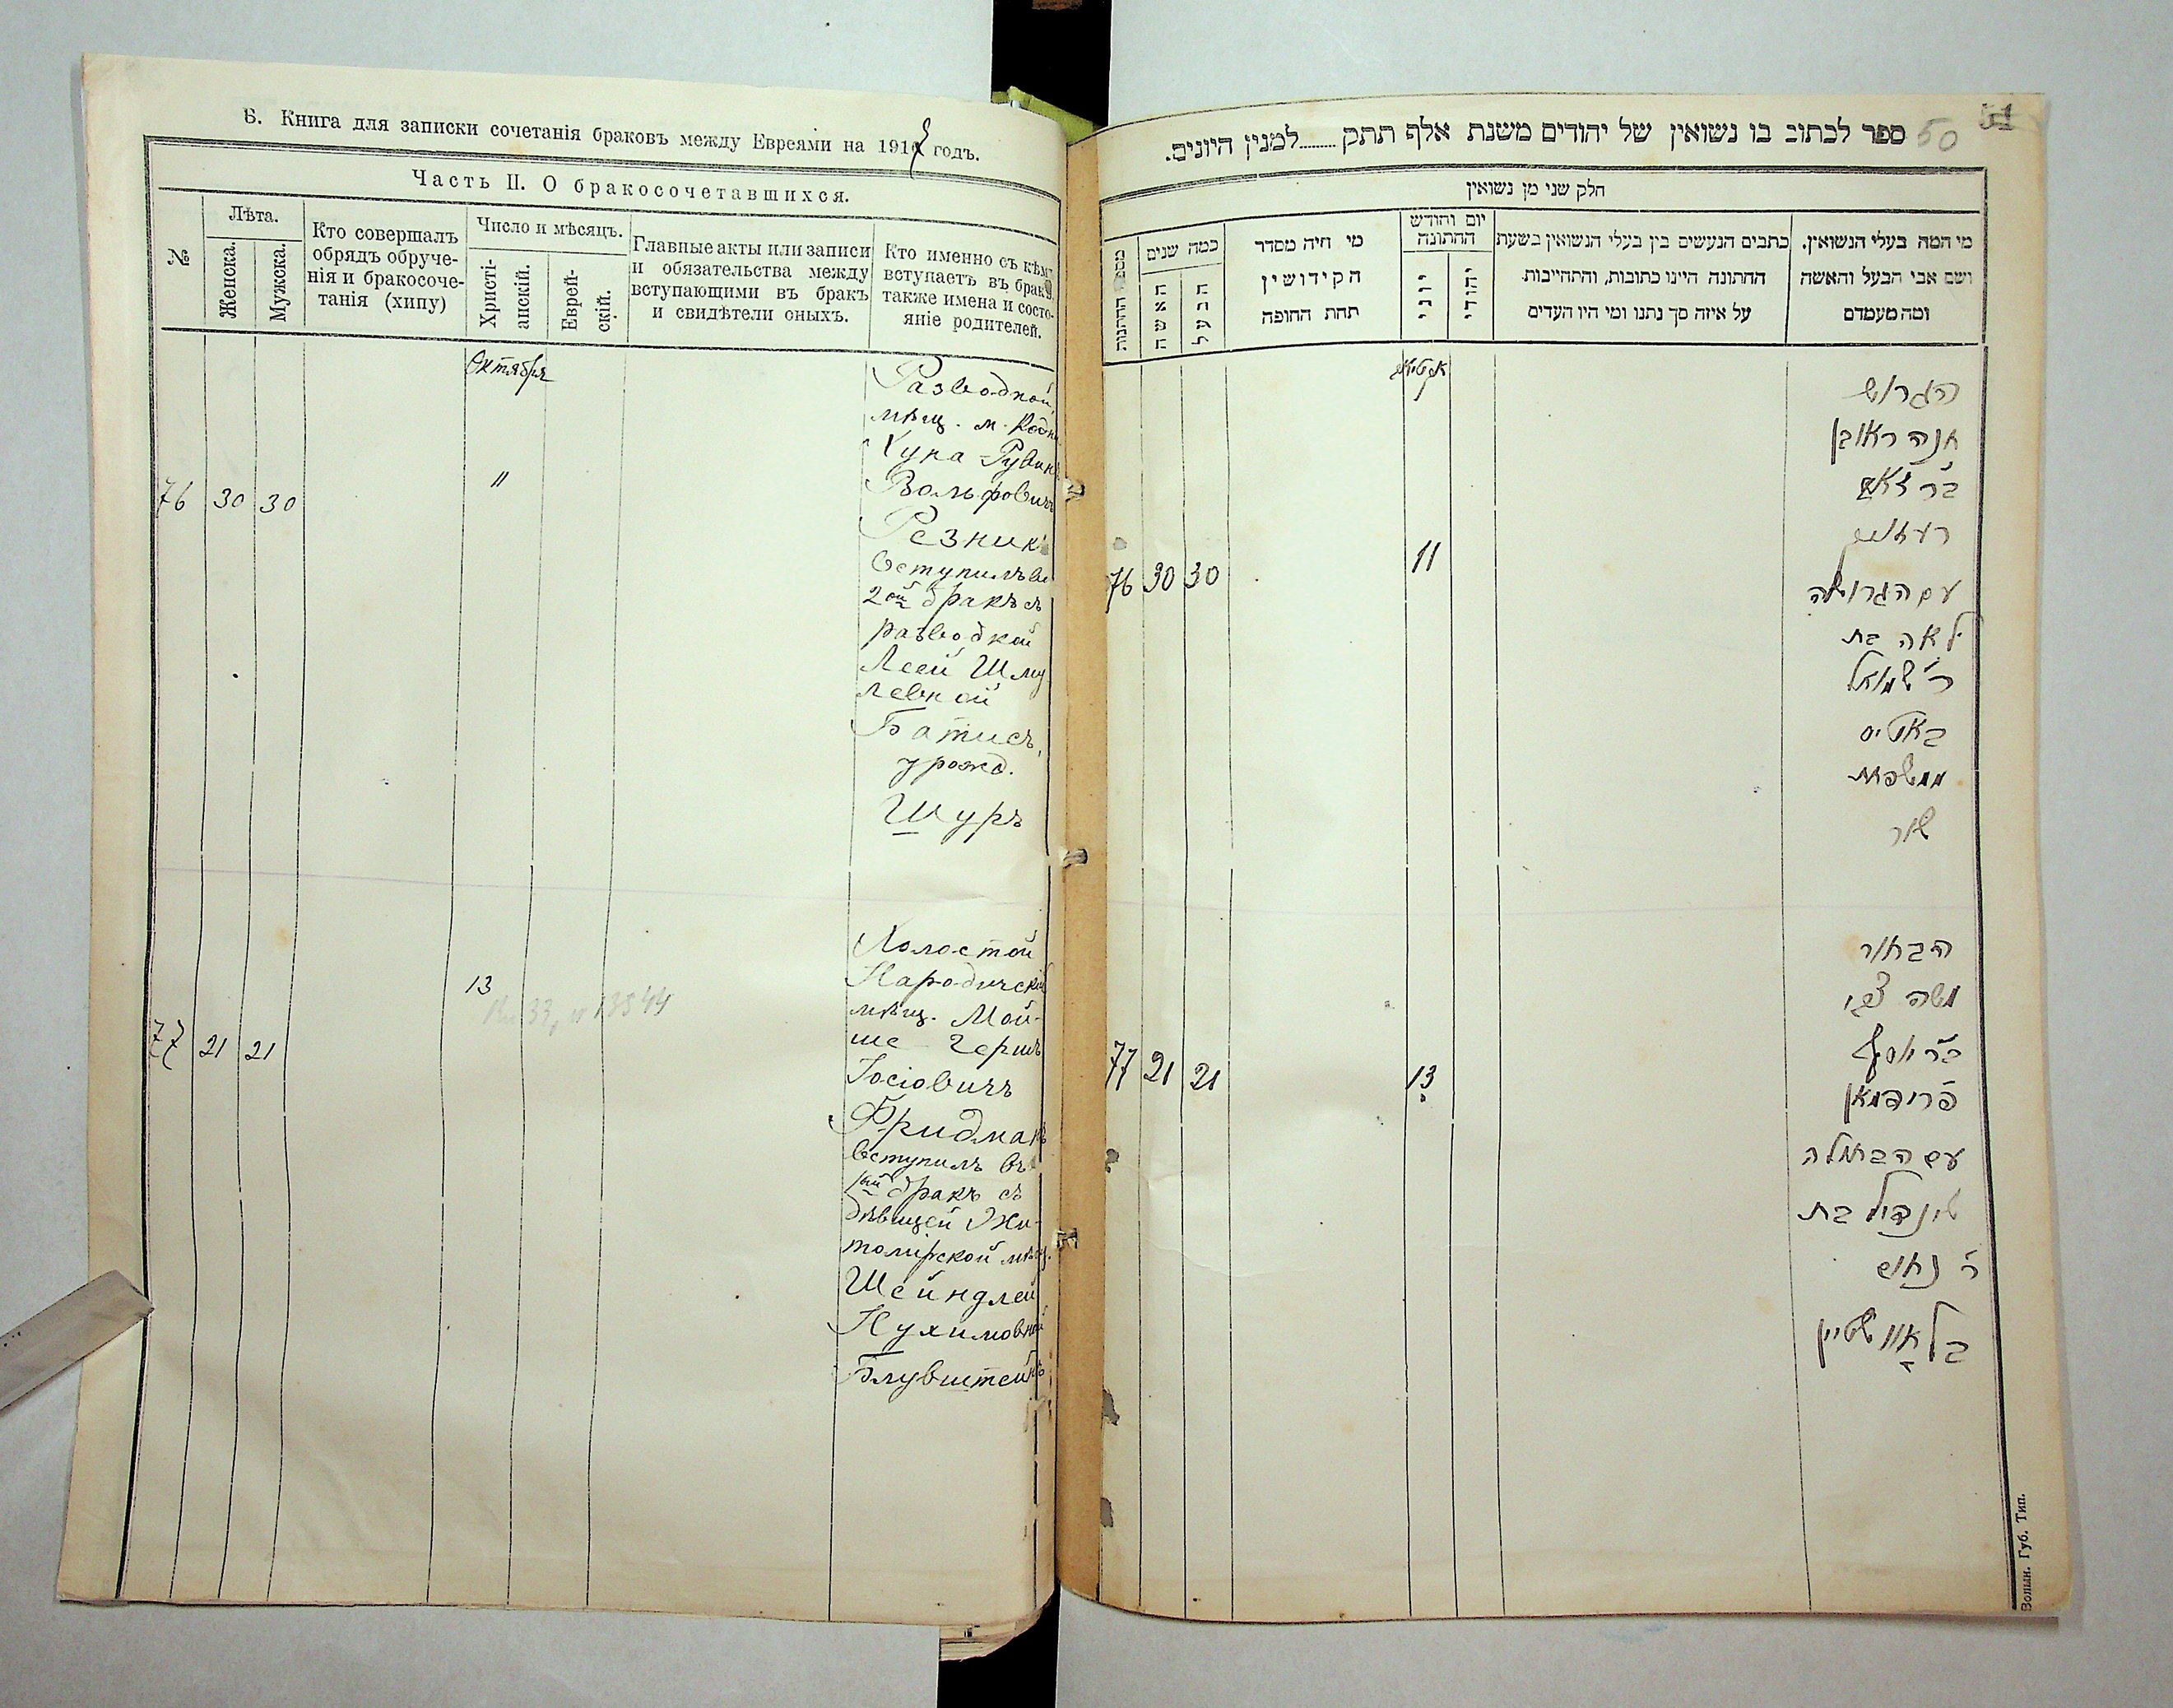 В. Книга для записки сочетанія браковъ между Евреями на 191 годъ.
Часть II. О бракосочетавшихся.
№
Лѣта.
Женска.
Мужска.
Кто совершалъ
обрядъ обруче-
нія и бракосоче-
танія (хипу)
Число и мѣсяцъ.
Христі-
анскій.
Еврей-
скій.
Главные акты или записи
и обязательства между
вступающими въ бракъ
и свидѣтели оныхъ.
Кто именно съ кѣмъ
вступаетъ въ бракъ,
также имена и состо-
яніе родителей.
Октября
76 30 30
11
Разводной,
мѣщ. м.
Рувинъ
Вольфовичъ
Резникъ
вступилъ во
2ой бракъ съ
разводкой
Леей Шму
левной
Батисъ,
урожд.
Шуръ
77 21 21
13
13544
Холостой
Народичскій
мѣщ. Мой-
ше Гершъ
Іосіовичъ
Фридманъ
вступилъ въ
1ый бракъ съ
дѣвицей Жи-
томірской мѣщ.
Шейндлей
Нухимовной
Блувштейнъ
50
51
ספר לכתוב בו נשואין של יהודים משנת אלף תתק........למנין היונים.
חלק שני מן נשואין
מספר החתונות
כמה שנים
האשה
הבעל
מי היה מסדר
הקידושין
תחת החופה
יום וחודש
החתונה
יוני
יהודי
כתבים הנעשים בין בעלי הנשואין בשעת
החתונה היינו כתובות, והתחייבות
על איזה סך נתנו ומי היו העדים
מי המה בעלי הנשואין.
ושם אבי הבעל והאשה
ומה מעמדם
76 30 30
11
הגרוש
חנה ראובן
עם הגרושה
לאה בת
ר' שמואל
באטיס
ממשפחת
שור
77 21 21
13
הבחור
משה צבי
בר יוסף
פרידמאן
עם הבתולה
שינדיל בת
ר' נחום
בלאוושטיין
Волын. Губ. Тип.